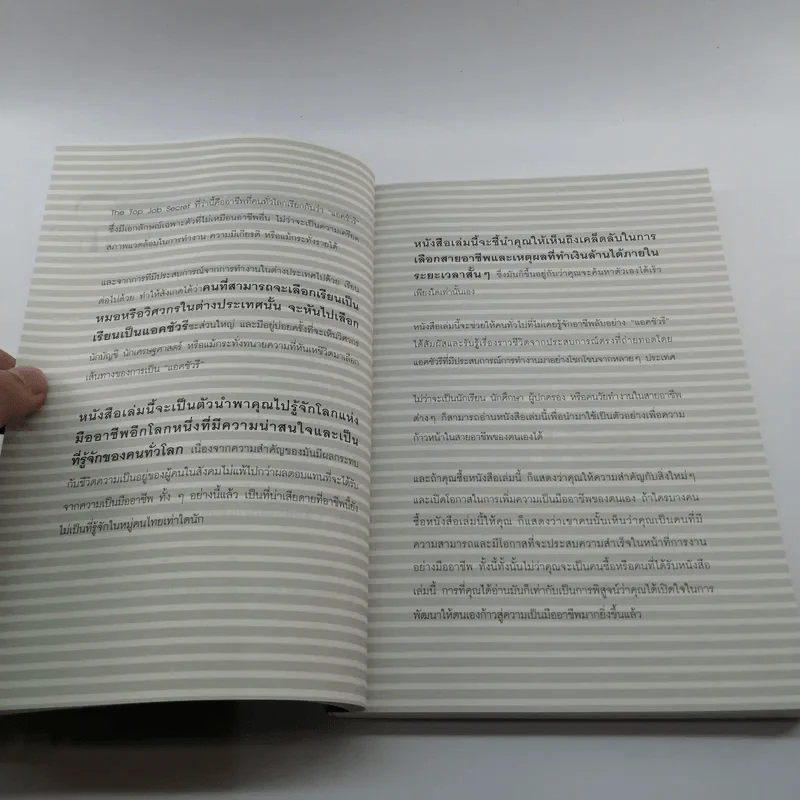 The Top Job Secret ที่ว่านี้คืออาชีพที่คนทั่วโลกเรียกกันว่า "แอคชัวรี"
ซึ่งมีเอกลักษณ์เฉพาะตัวที่ไม่เหมือนอาชีพอื่น ไม่ว่าจะเป็นความเครียด
สภาพแวดล้อมในการทำงาน ความมีเกียรติ หรือแม้กระทั่งรายได้
และจากการที่มีประสบการณ์จากการทำงานในต่างประเทศไปด้วย เรียน
ต่อไปด้วย ทำให้สังเกตได้ว่า คนที่สามารถจะเลือกเรียนเป็น
หมอหรือวิศวกรในต่างประเทศนั้น จะหันไปเลือก
เรียนเป็นแอคชัวรีซะส่วนใหญ่ และมีอยู่บ่อยครั้งที่จะเห็นวิศวกร
นักบัญชี นักเศรษฐศาสตร์ หรือแม้กระทั่งทนายความที่หันเหชีวิตมาเลือก
เส้นทางของการเป็น "แอคชัวรี"
หนังสือเล่มนี้จะเป็นตัวนำพาคุณไปรู้จักโลกแห่ง
มืออาชีพอีกโลกหนึ่งที่มีความน่าสนใจและเป็น
ที่รู้จักของคนทั่วโลก เนื่องจากความสำคัญของมันมีผลกระทบ
กับชีวิตความเป็นอยู่ของผู้คนในสังคมไม่แพ้ไปกว่าผลตอบแทนที่จะได้รับ
จากความเป็นมืออาชีพ ทั้ง ๆ อย่างนี้แล้ว เป็นที่น่าเสียดายที่อาชีพนี้ยัง
ไม่เป็นที่รู้จักในหมู่คนไทยเท่าใดนัก
หนังสือเล่มนี้จะชี้นำคุณให้เห็นถึงเคล็ดลับในการ
เลือกสายอาชีพและเหตุผลที่ทำเงินล้านได้ภายใน
ระยะเวลาสั้นๆ ซึ่งมันก็ขึ้นอยู่กับว่าคุณจะค้นหาตัวเองได้เร็ว
เพียงใดเท่านั้นเอง
หนังสือเล่มนี้จะช่วยให้คนทั่วไปที่ไม่เคยรู้จักอาชีพลับอย่าง "แอคชัวรี"
ได้สัมผัสและรับรู้เรื่องราวชีวิตจากประสบการณ์ตรงที่ถ่ายทอดโดย
แอคชัวรีที่มีประสบการณ์การทำงานมาอย่างโชกโชนจากหลายๆ ประเทศ
ไม่ว่าจะเป็นนักเรียน นักศึกษา ผู้ปกครอง หรือคนวัยทำงานในสายอาชีพ
ต่างๆ ก็สามารถอ่านหนังสือเล่มนี้เพื่อนำมาใช้เป็นตัวอย่างเพื่อความ
ก้าวหน้าในสายอาชีพของตนเองได้
และถ้าคุณซื้อหนังสือเล่มนี้ ก็แสดงว่าคุณให้ความสำคัญกับสิ่งใหม่ๆ
และเปิดโอกาสในการเพิ่มความเป็นมืออาชีพของตนเอง ถ้าใครบางคน
ซื้อหนังสือเล่มนี้ให้คุณ ก็แสดงว่าเขาคนนั้นเห็นว่าคุณเป็นคนที่มี
ความสามารถและมีโอกาสที่จะประสบความสำเร็จในหน้าที่การงาน
อย่างมืออาชีพ ทั้งนี้ทั้งนั้นไม่ว่าคุณจะเป็นคนซื้อหรือคนที่ได้รับหนังสือ
เล่มนี้ การที่คุณได้อ่านมันก็เท่ากับเป็นการพิสูจน์ว่าคุณได้เปิดใจในการ
พัฒนาให้ตนเองก้าวสู่ความเป็นมืออาชีพมากยิ่งขึ้นแล้ว